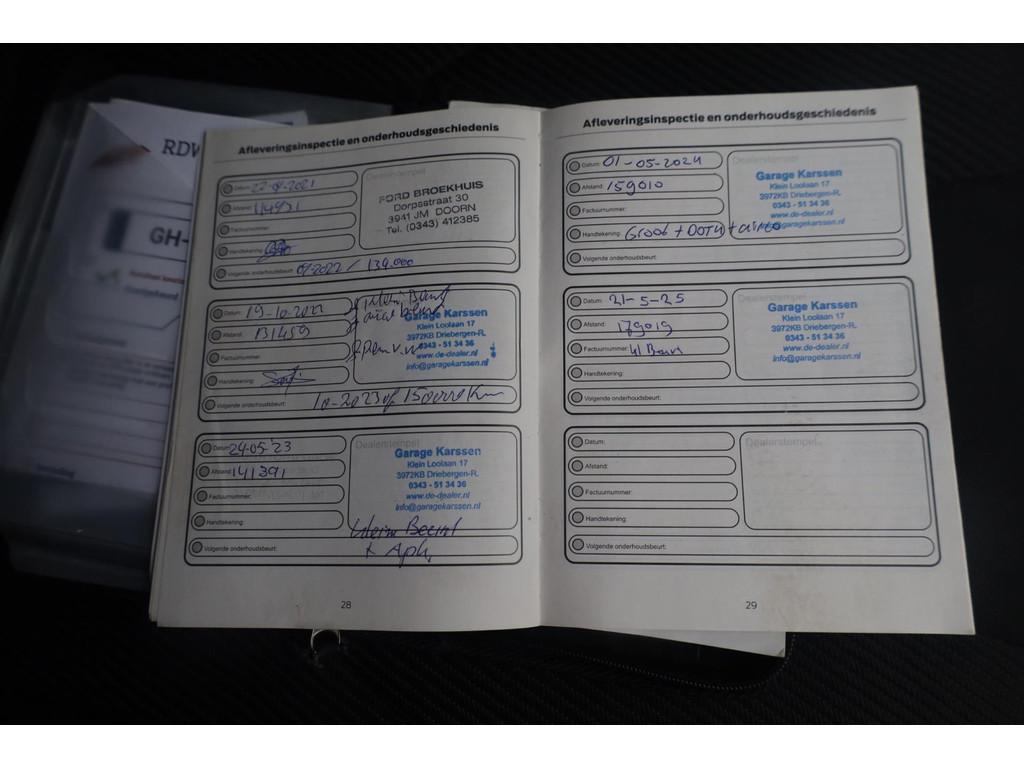 RDW
GH-
Afleveringsinspectie en onderhoudsgeschiedenis
Datum: 22-09-2021
Afstand:
Factuurnummer:
Handtekening:
Volgende onderhoudsbeurt: 09/2022 / 139.000
Dealerstempel
FORD BROEKHUIS
Dorpsstraat 30
3941 JM DOORN
Tel. (0343) 412385
Datum: 19-10-2022
Afstand: 131459
Factuurnummer:
Handtekening:
Volgende onderhoudsbeurt: 10-2023 of 150000 Km
Garage Karssen
Klein Loolaan 17
3972KB Driebergen-R.
0343 - 51 34 36
www.de-dealer.nl
info@garagekarssen.nl
Datum: 24-05-'23
Afstand: 141391
Factuurnummer:
Handtekening:
Volgende onderhoudsbeurt:
Dealerstempel
Garage Karssen
Klein Loolaan 17
3972KB Driebergen-R.
0343 - 51 34 36
www.de-dealer.nl
info@garagekarssen.nl
Kleine Beurt
+ Apk,
28
Afleveringsinspectie en onderhoudsgeschiedenis
Datum: 01-05-2024
Afstand: 159010
Factuurnummer:
Handtekening: Groot + DOT4 + airco
Volgende onderhoudsbeurt:
Dealerstempel
Garage Karssen
Klein Loolaan 17
3972KB Driebergen-R.
0343 - 51 34 36
www.de-dealer.nl
info@garagekarssen.nl
Datum: 21-5-25
Afstand: 179019
Factuurnummer: kl Beurt
Handtekening:
Volgende onderhoudsbeurt:
Dealerstempel
Garage Karssen
Klein Loolaan 17
3972KB Driebergen-R.
0343 - 51 34 36
www.de-dealer.nl
info@garagekarssen.nl
Datum:
Afstand:
Factuurnummer:
Handtekening:
Volgende onderhoudsbeurt:
Dealerstempel
29